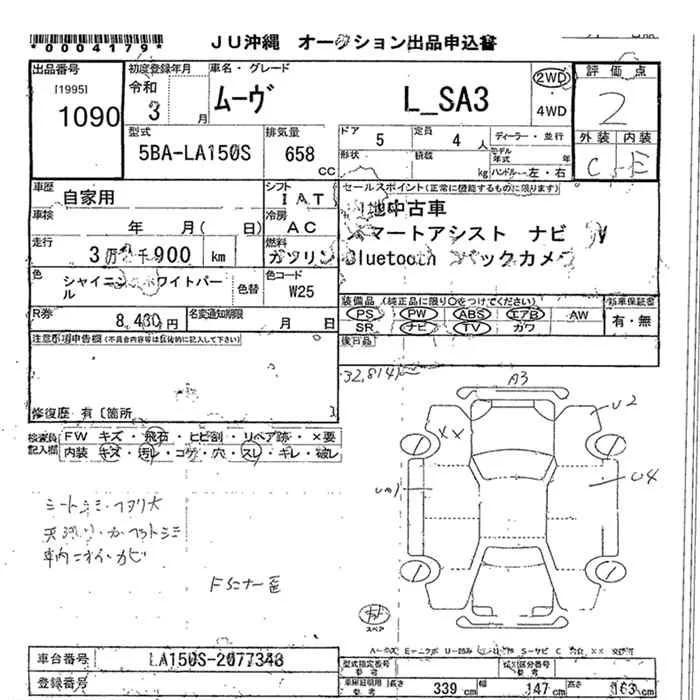 *0004179*
JU沖縄 オークション出品申込書
出品番号
[1995]
1090
初度登録年月
令和
3 月
車名・グレード
ムーヴ L_SA3
2WD
・
4WD
評価点
2
外装 内装
C E
型式
5BA-LA150S
排気量
658 cc
ドア 5
定員 4 人
ディーラー・並行
形状
積載 kg
モデル年式 年
ハンドル 左・右
車歴
自家用
シフト
IAT
セールスポイント(正常に機能するものに限ります)
地中古車
マートアシスト ナビ
Bluetooth バックカメ
車検
年 月( 日)
冷房
AC
走行
3万 千900 km
燃料
ガソリン
色
シャイニングホワイトパール
色替
色コード
W25
装備品(純正品に限り○をつけてください)
PS PW ABS エアB AW
SR ナビ TV カワ
新車保証書
有・無
R券
8,430円
名変通知期限
月 日
後日品
注意事項申告欄(不具合内容等は具体的に記入して下さい)
修復歴 有〔箇所
32,814
検査員記入欄
FW キズ・飛石・ヒビ割・リペア跡・×要
内装 キズ・汚レ・コゲ・穴・スレ・キレ・破レ
A3
U2
XX
U4
シートシミ・ヘタリ大
車内ニオイ・カビ
スペア
車台番号
LA150S-2077348
登録番号
型式指定番号
参考
類別区分番号
参考
車庫証明用
参考
長さ 339 cm
幅 147 cm
高さ 163 cm